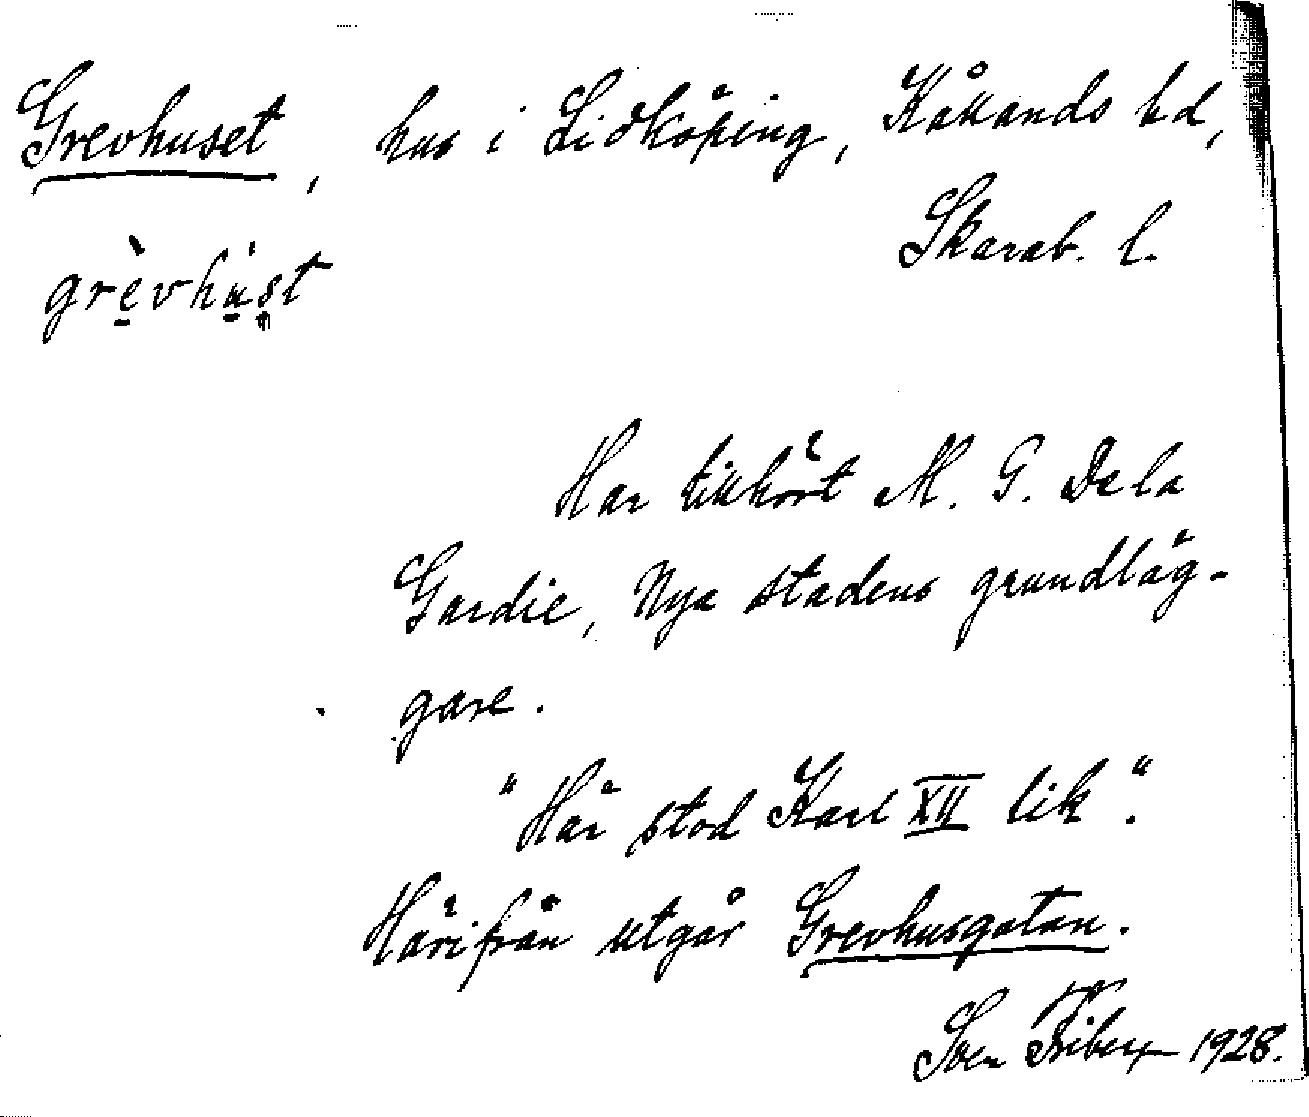 Grevhuset, hus i Lidköping, Kållands hd,
Skarab. l.
grèvhúst
Har tillhört M. G. De la
Gardie, Nya stadens grundläg-
gare.
"Här stod Karl XII lik".
Härifrån utgår Grevhusgatan.
Sven Friberg 1928.